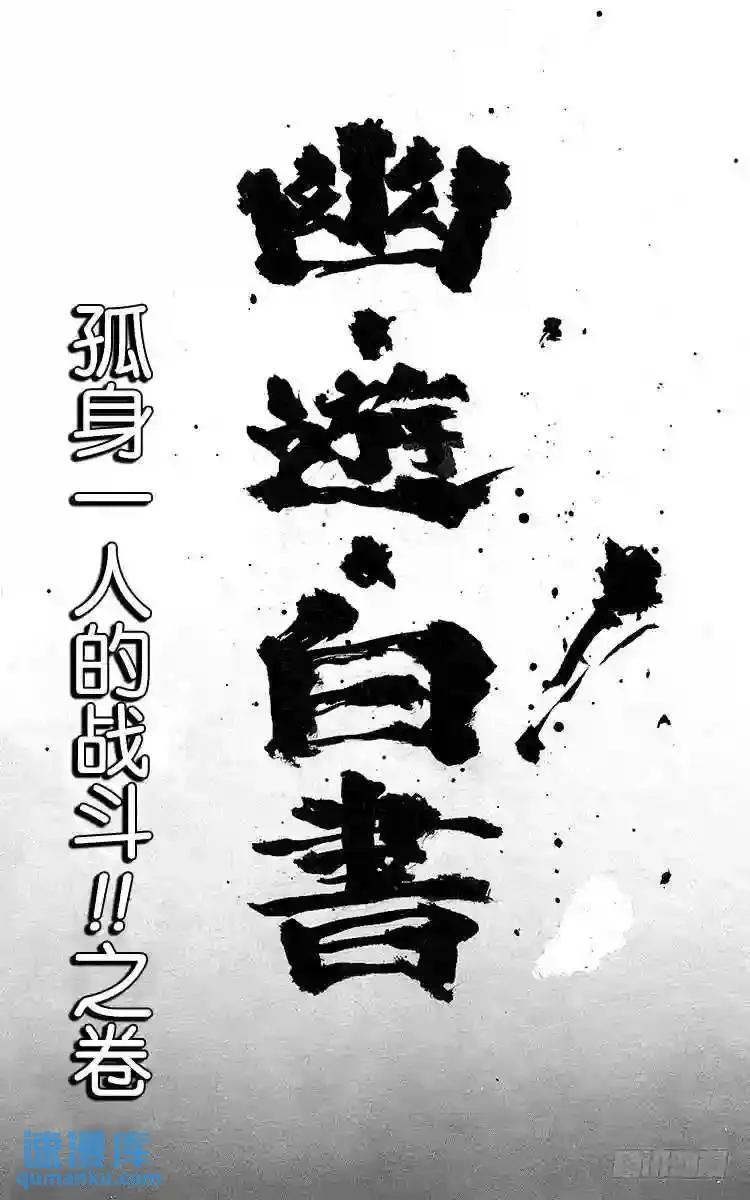 幽・遊・白書
孤身一人的战斗!!之卷
速漫库
qumanku.com